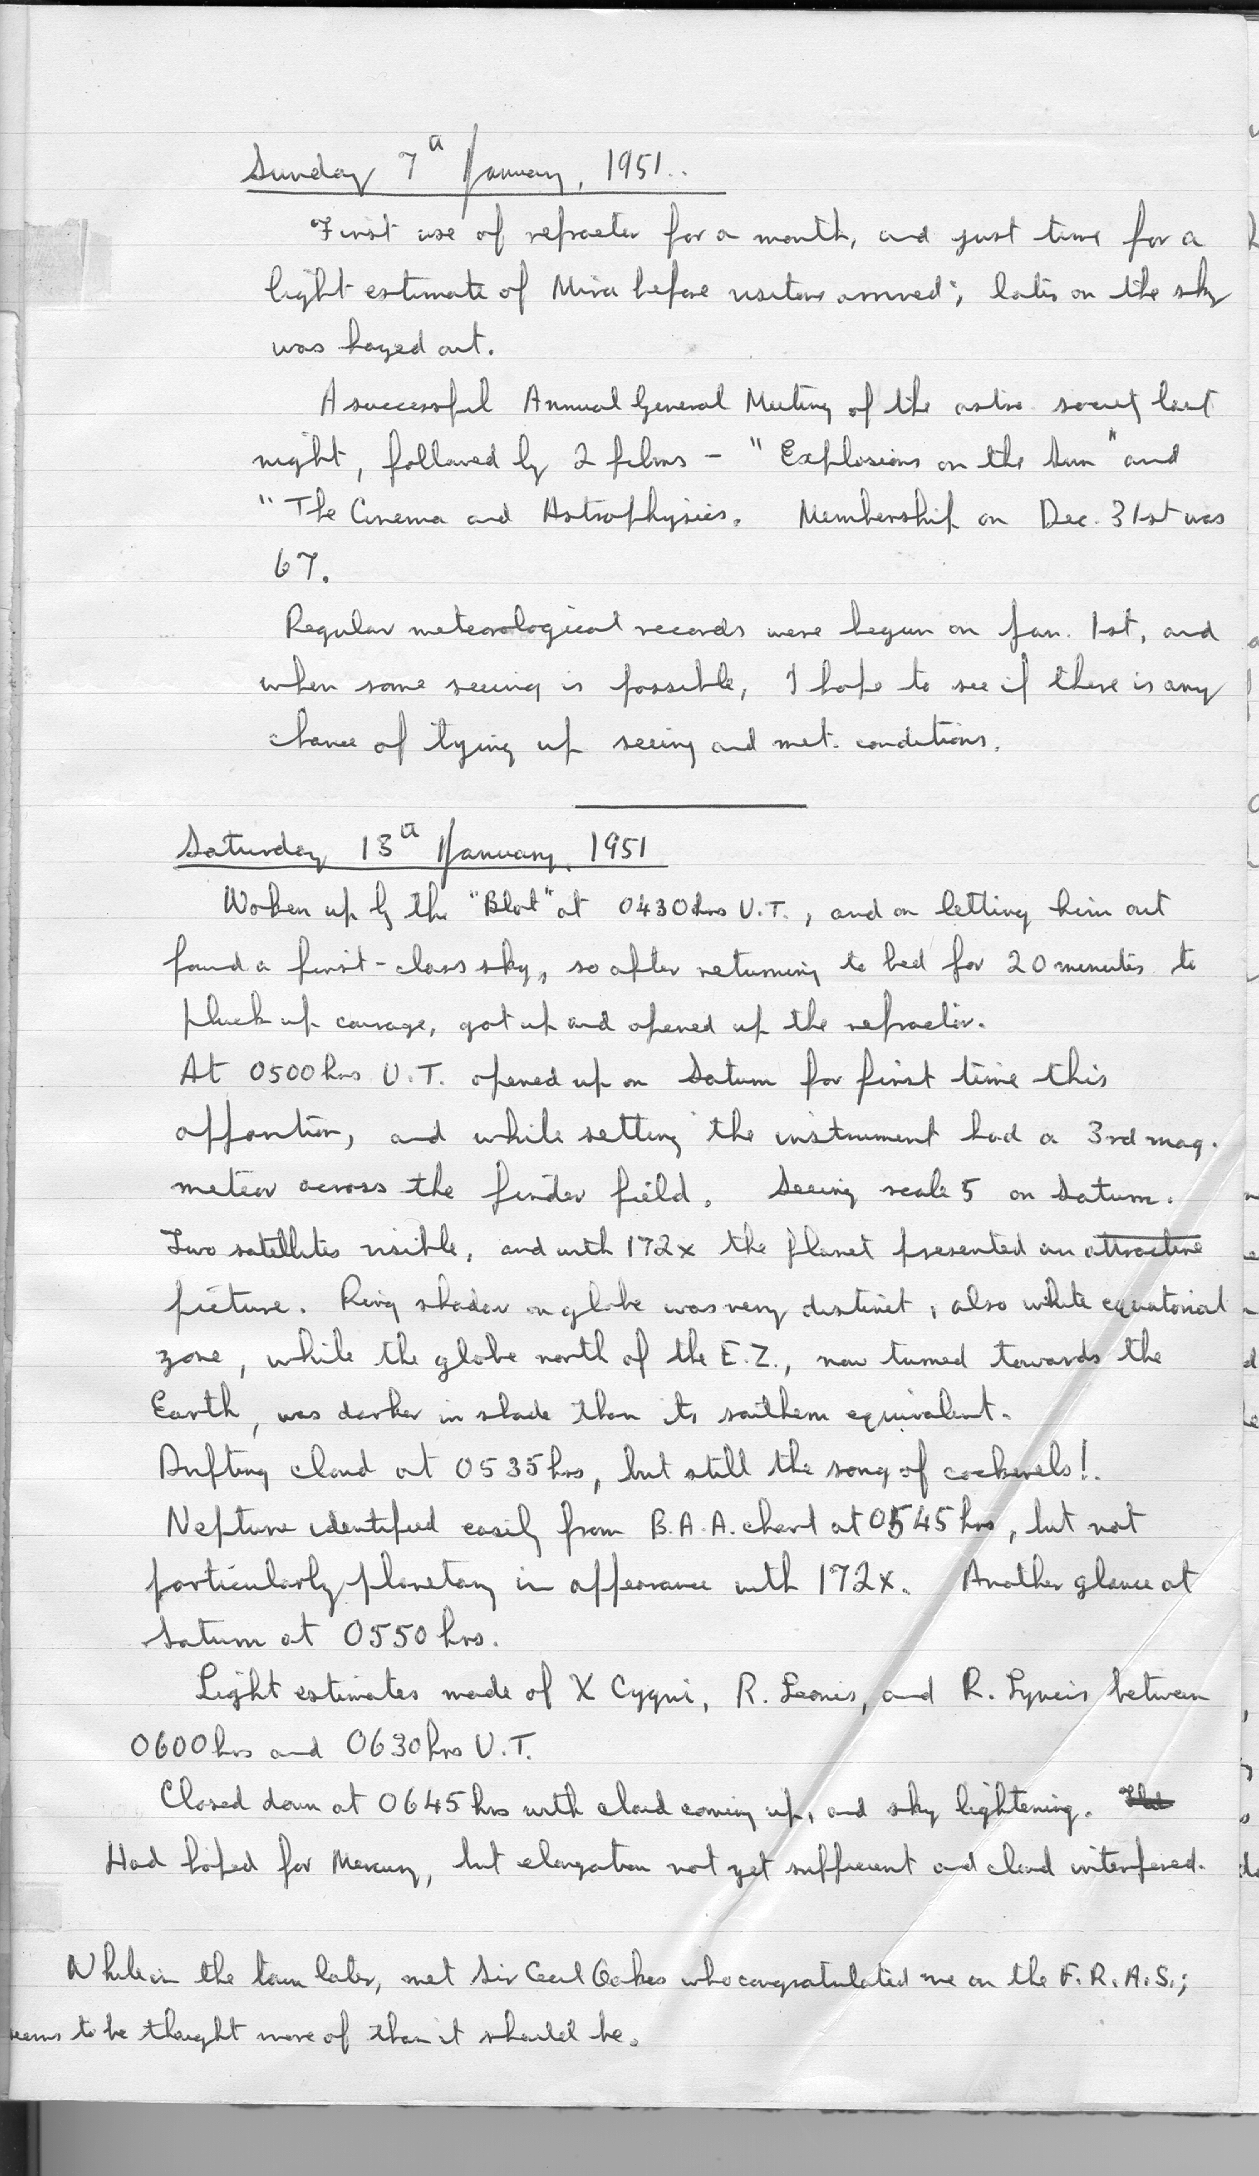 Sunday 7th January, 1951..
First use of refractor for a month, and just time for a
light estimate of Mira before visitors arrived; later on the sky
was hazed out.
A successful Annual General Meeting of the astro. society last
night, followed by 2 films - "Explosions on the Sun" and
"The Cinema and Astrophysics. Membership on Dec. 31st was
67.
Regular meteorological records were begun on Jan. 1st, and
when some seeing is possible, I hope to see if there is any
chance of tying up seeing and met. conditions.
Saturday 13th January, 1951
Woken up by the "Blot" at 0430hrs U.T., and on letting him out
found a first-class sky, so after returning to bed for 20 minutes to
pluck up courage, got up and opened up the refractor.
At 0500hrs U.T. opened up on Saturn for first time this
apparition, and while setting the instrument had a 3rd mag.
meteor across the finder field. Seeing scale 5 on Saturn.
Two satellites visible, and with 172x the planet presented an attractive
picture. Ring shadow on globe was very distinct, also white equatorial
zone, while the globe north of the E.Z., now turned towards the
Earth, was darker in shade than its southern equivalent.
Drifting cloud at 0535hrs, but still the song of cockerels!.
Neptune identified easily from B.A.A. chart at 0545hrs, but not
particularly planetary in appearance with 172x. Another glance at
Saturn at 0550hrs.
Light estimates made of X Cygni, R. Leonis, and R. Lyncis between
0600hrs and 0630hrs U.T.
Closed down at 0645hrs with cloud coming up, and sky lightening.
Had hoped for Mercury, but elongation not yet sufficient and cloud interfered.
While in the town later, met Sir Cecil Oakes who congratulated me on the F.R.A.S.;
seems to be thought more of than it should be.